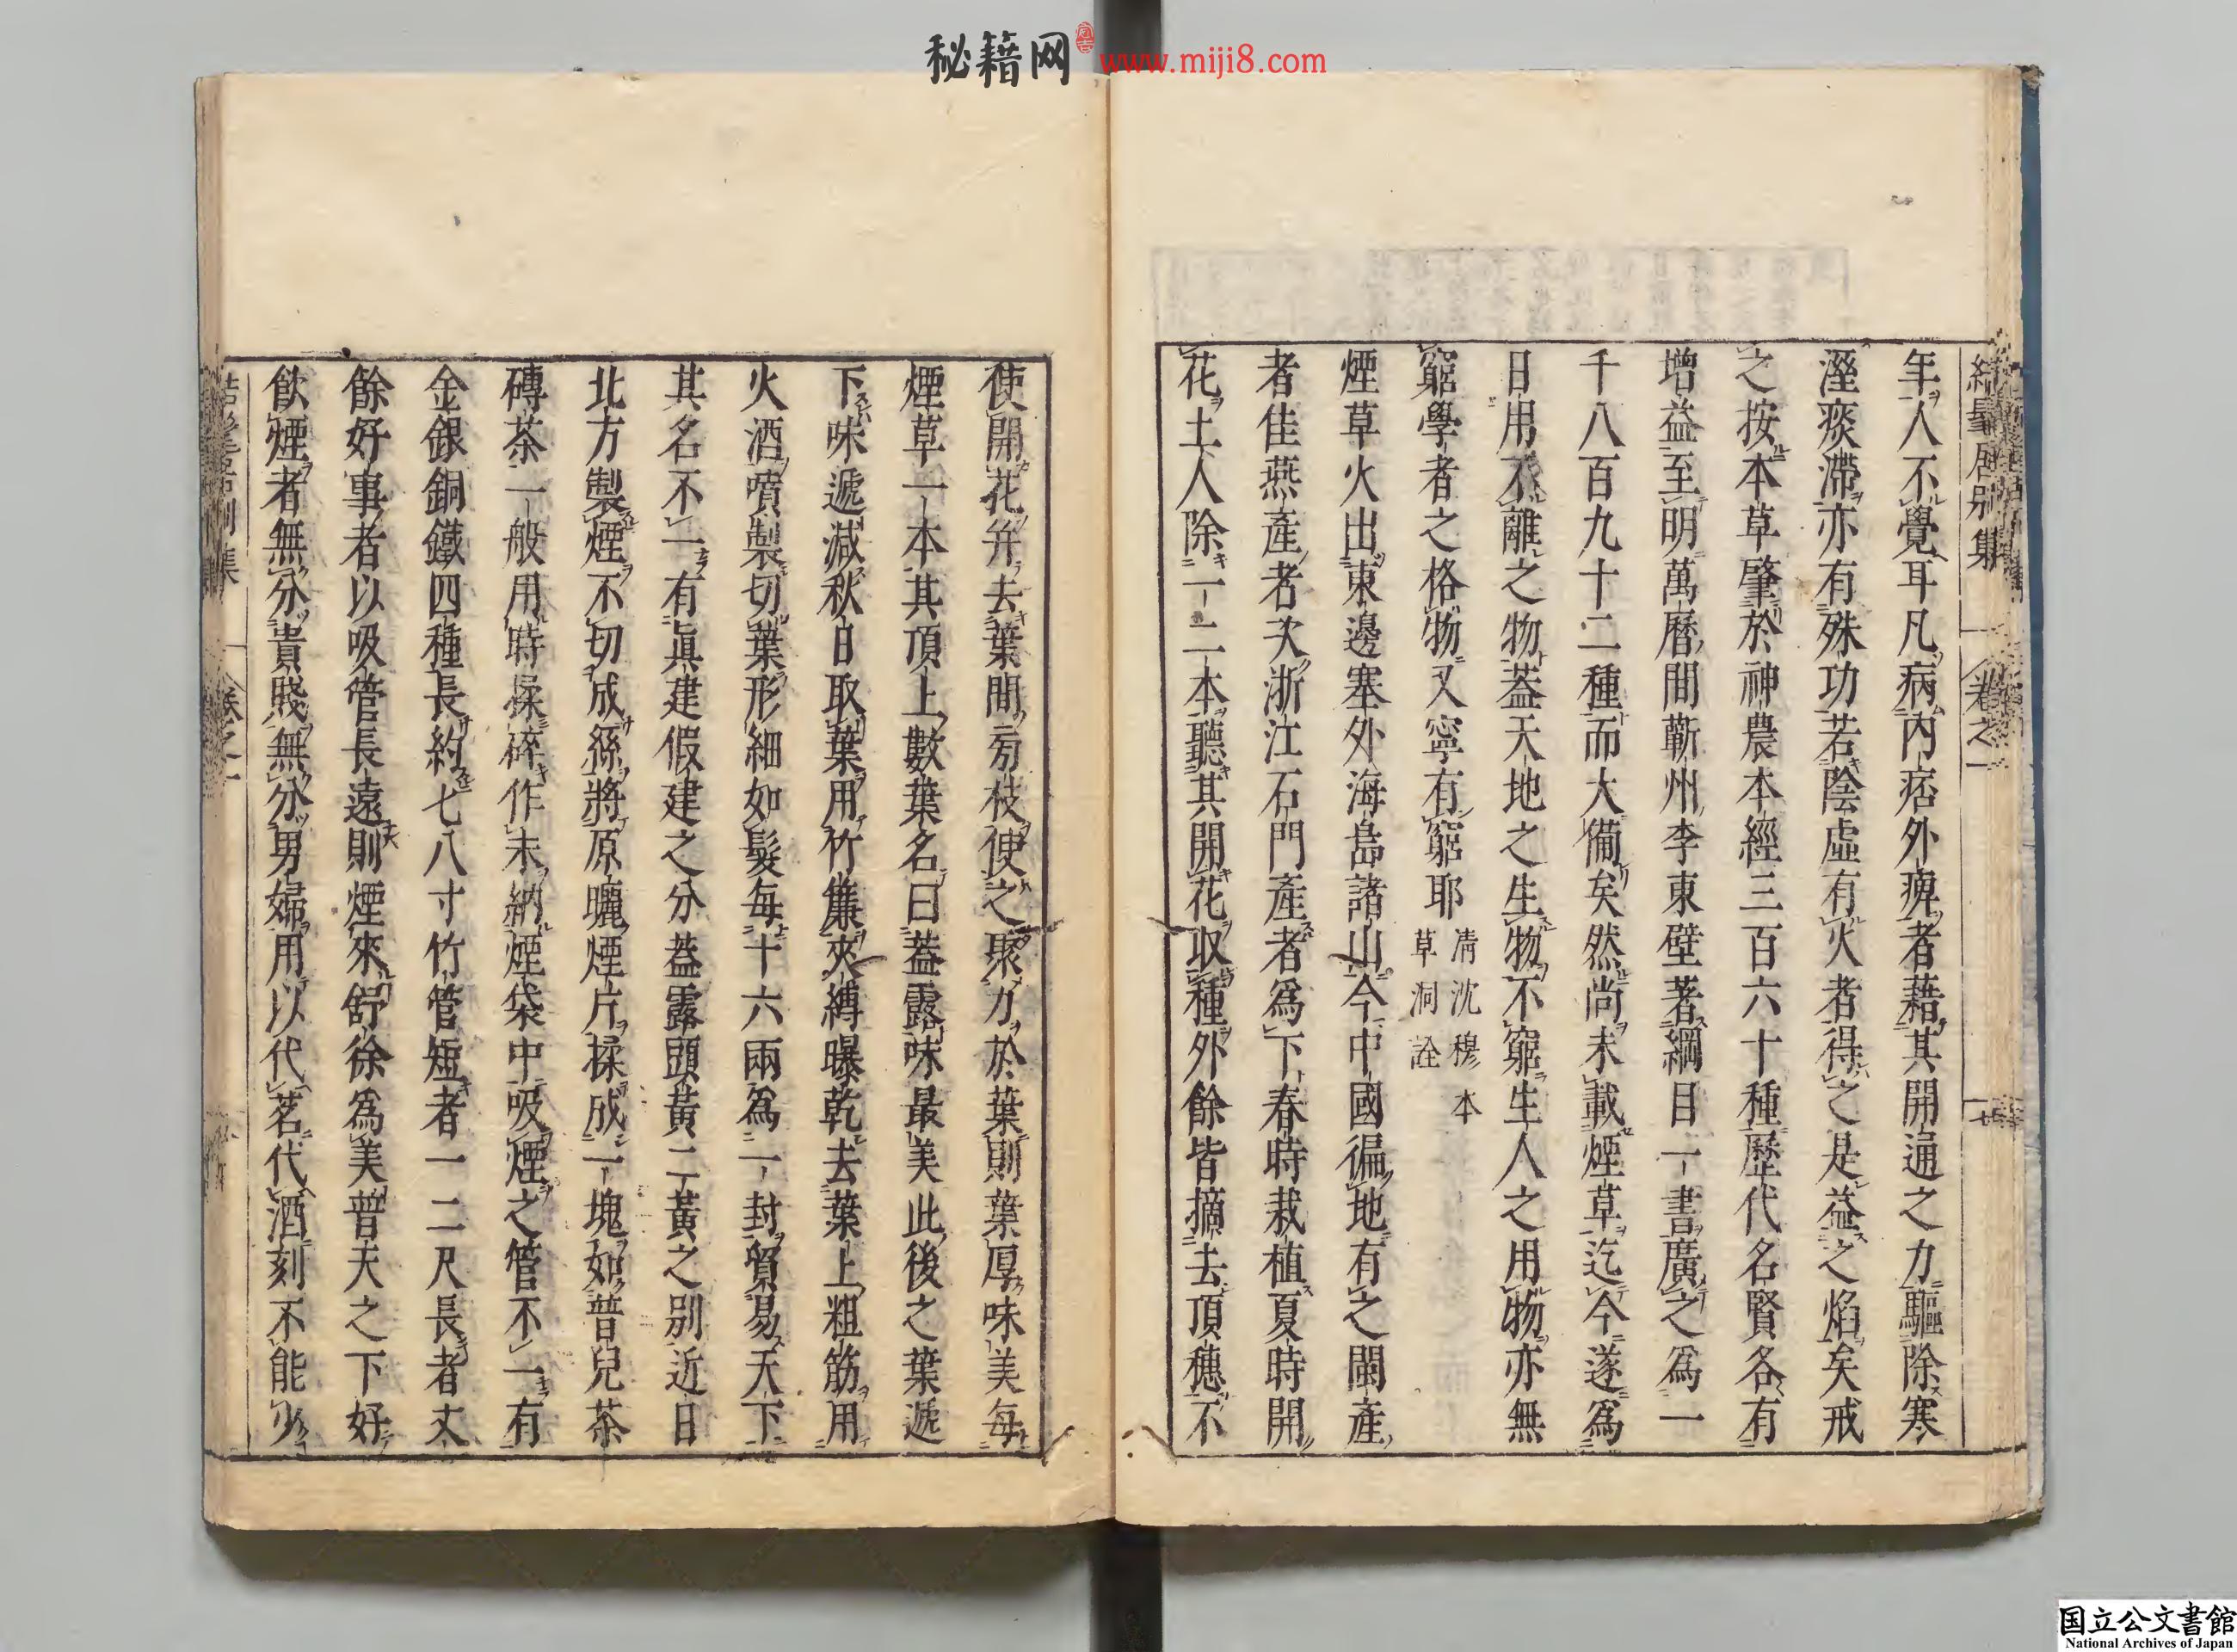 秘籍网 www.miji8.com
結髦居別集 卷之一 十
年人不覺耳凡病內痞外痺者藉其開通之力驅除寒
溼痰滯亦有殊功若陰虛有火者得之是益之焰矣戒
之按本草肇於神農本經三百六十種歷代名賢各有
增益至明萬曆間蘄州李東壁著綱目一書廣之爲一
千八百九十二種而大備矣然尚未載煙草迄今遂爲
日用不離之物蓋天地之生物不窮生人之用物亦無
窮學者之格物又寧有窮耶 清沈穆本草洞詮
煙草火出東邊塞外海島諸山今中國徧地有之閩產
者佳燕產者次浙江石門產者爲下春時栽植夏時開
花土人除一二本聽其開花收種外餘皆摘去頂穗不
使開花并去葉間旁枝使之聚力於葉則葉厚味美每
煙草一本其頂上數葉名曰蓋露味最美此後之葉遞
下味遞減秋日取葉用竹簾夾縛曝乾去葉上粗筋用
火酒噴製切葉形細如髮每十六兩爲一封貿易天下
其名不一有真建假建之分蓋露頭黃二黃之別近日
北方製煙不切成絲將原曬煙片揉成一塊如普兒茶
磚茶一般用時揉碎作末納煙袋中吸煙之管不一有
金銀銅鐵四種長約七八寸竹管短者一二尺長者丈
餘好事者以吸管長遠則煙來舒徐爲美普天之下好
飲煙者無分貴賤無分男婦用以代茗代酒刻不能少
居別集 卷之一
国立公文書館
National Archives of Japan